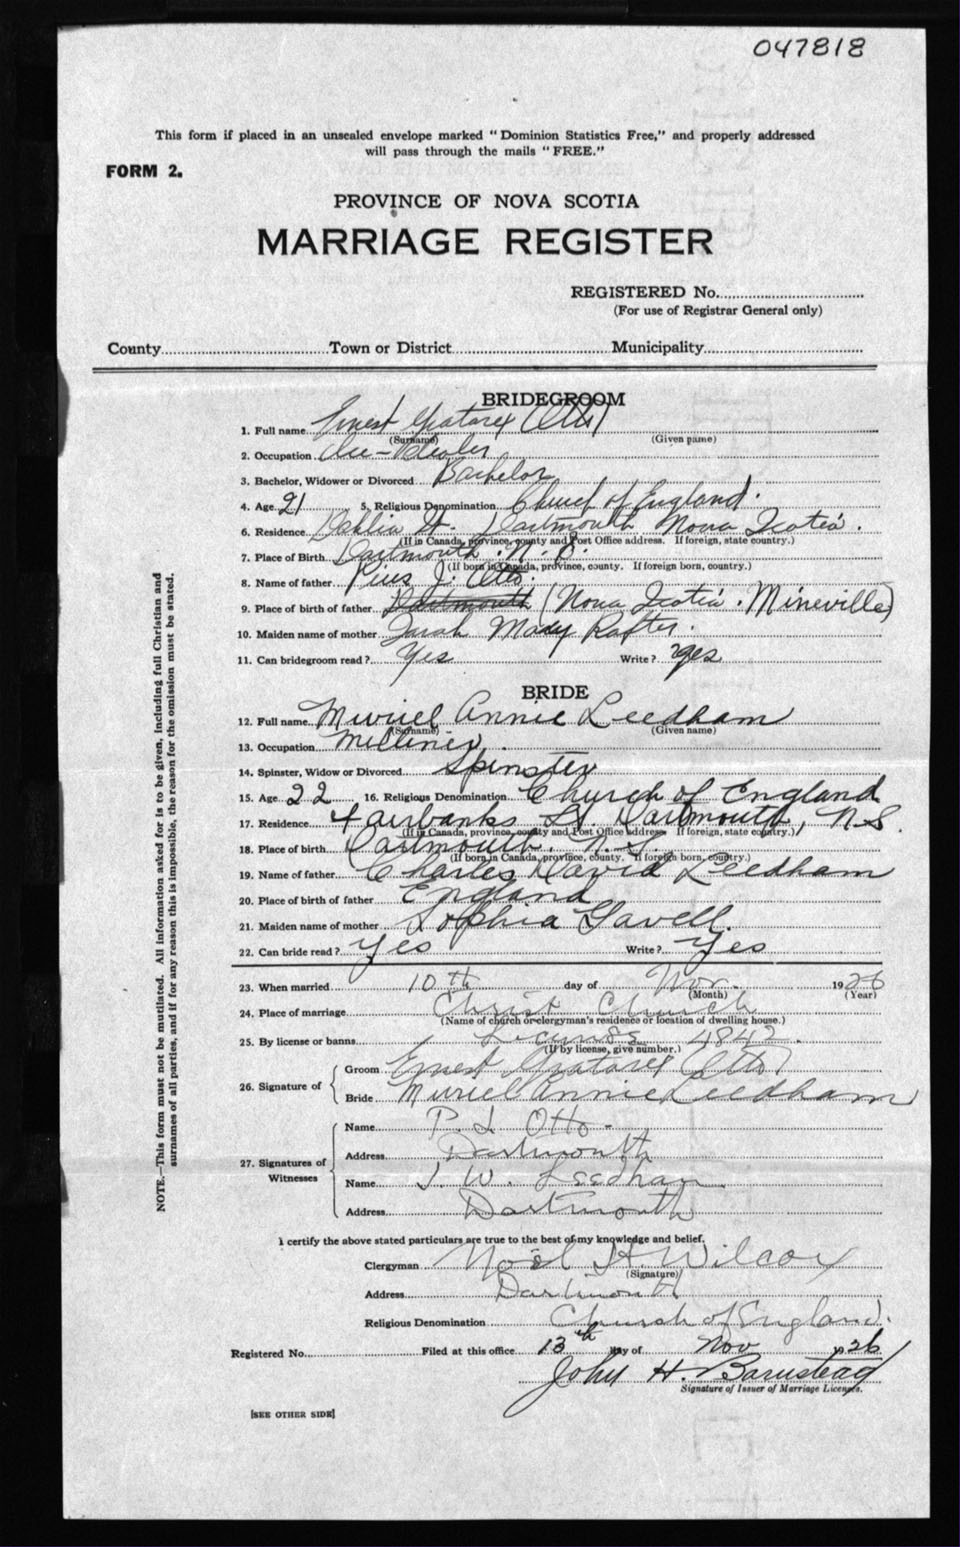 047818
This form if placed in an unsealed envelope marked "Dominion Statistics Free," and properly addressed
will pass through the mails "FREE."
FORM 2.
PROVINCE OF NOVA SCOTIA
MARRIAGE REGISTER
REGISTERED No.
(For use of Registrar General only)
County Town or District Municipality
BRIDEGROOM
1. Full name Ernest Otto
(Surname) (Given name)
2. Occupation Ice-Dealer
3. Bachelor, Widower or Divorced Bachelor
4. Age 21 5. Religious Denomination Church of England.
6. Residence Dahlia St. Dartmouth Nova Scotia.
(If in Canada, province, county and Post Office address. If foreign, state country.)
7. Place of Birth Dartmouth. N. S.
(If born in Canada, province, county. If foreign born, country.)
8. Name of father Pius J. Otto.
9. Place of birth of father Dartmouth (Nova Scotia. Mineville)
10. Maiden name of mother Sarah Mary Rafter.
11. Can bridegroom read? Yes Write? Yes
BRIDE
12. Full name Muriel Annie Leedham
(Surname) (Given name)
13. Occupation Milliner.
14. Spinster, Widow or Divorced Spinster
15. Age 22 16. Religious Denomination Church of England
17. Residence Fairbanks St. Dartmouth, N.S.
(If in Canada, province, county and Post Office address. If foreign, state country.)
18. Place of birth Dartmouth. N. S.
(If born in Canada, province, county. If foreign born, country.)
19. Name of father Charles David Leedham
20. Place of birth of father England
21. Maiden name of mother Sophia Gavell.
22. Can bride read? Yes Write? Yes
23. When married 10th day of Nov. 1926
(Month) (Year)
24. Place of marriage Christ Church
(Name of church or clergyman's residence or location of dwelling house.)
25. By license or banns License 4842.
(If by license, give number.)
26. Signature of Groom Ernest Otto
Bride Muriel Annie Leedham
27. Signatures of Witnesses
Name P. J. Otto
Address Dartmouth
Name J. W. Leedham
Address Dartmouth
I certify the above stated particulars are true to the best of my knowledge and belief.
Clergyman Noël H. Wilcox
(Signature)
Address Dartmouth
Religious Denomination Church of England.
Registered No. Filed at this office 13th day of Nov 1926
John H. Barnstead
Signature of Issuer of Marriage Licenses.
[SEE OTHER SIDE]
NOTE.—This form must not be mutilated. All information asked for is to be given, including full Christian and
surnames of all parties, and if for any reason this is impossible, the reason for the omission must be stated.